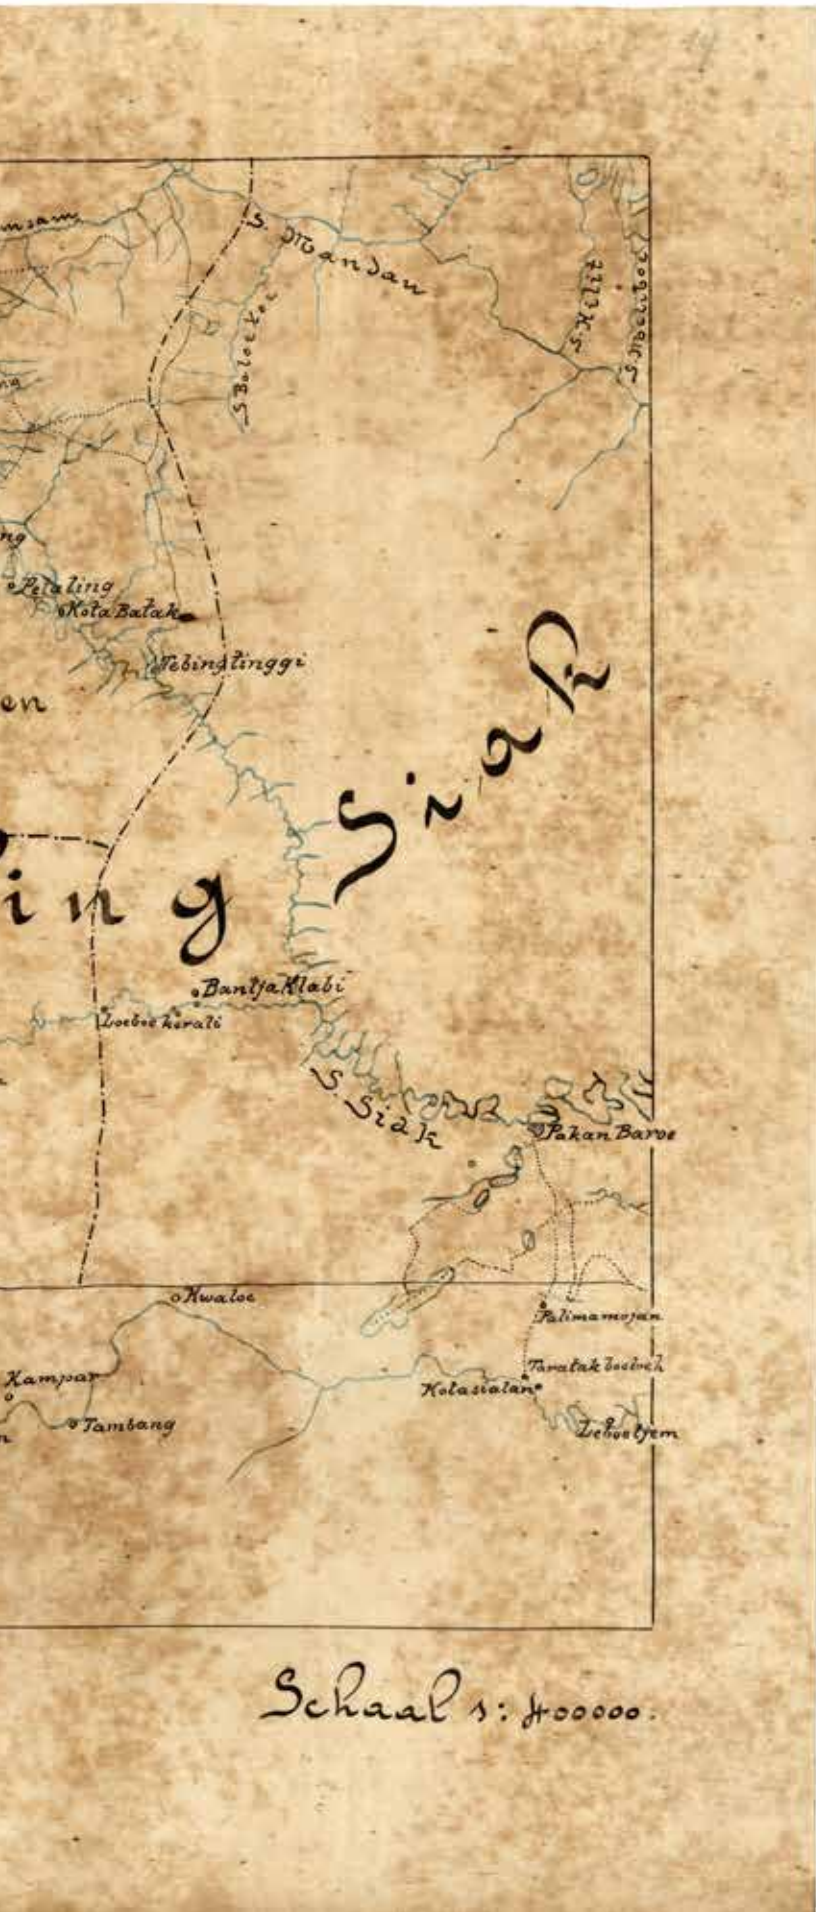 S. Mandau
S. Kilit
S. Meliboe
S Baloekoe
Petaling
Kota Batak
Tebing tinggi
en
Siak
ing
Bantja Klabi
Loeboe kerali
S. Siak
Pakan Baroe
Kwaloe
Palimamojan
Kampar
Taratak boeloeh
Kotasialan
Tambang
Schaal 1:400000.